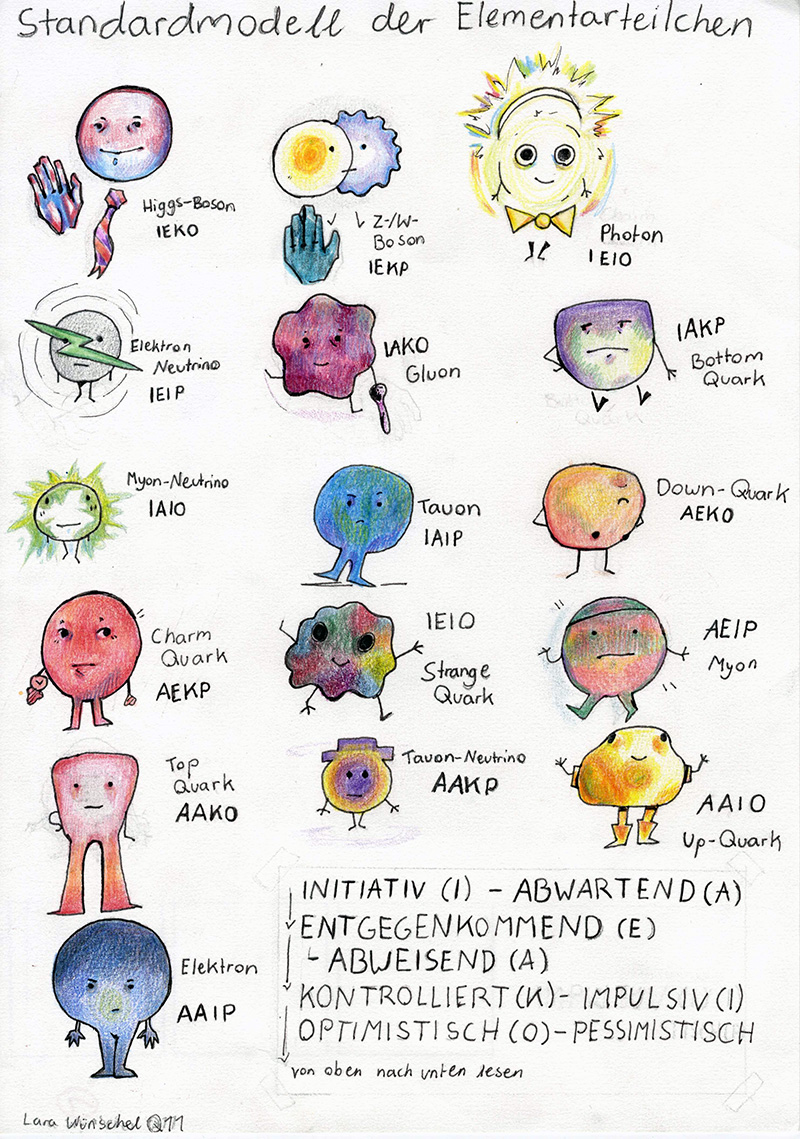 Standardmodell der Elementarteilchen
Higgs-Boson
IEKO
Z-/W-
Boson
IEKP
Photon
IEIO
Elektron
Neutrino
IEIP
IAKO
Gluon
IAKP
Bottom
Quark
Myon-Neutrino
IAIO
Tauon
IAIP
Down-Quark
AEKO
Charm
Quark
AEKP
IEIO
Strange
Quark
AEIP
Myon
Top
Quark
AAKO
Tauon-Neutrino
AAKP
AAIO
Up-Quark
Elektron
AAIP
INITIATIV (I) - ABWARTEND (A)
ENTGEGENKOMMEND (E)
- ABWEISEND (A)
KONTROLLIERT (K) - IMPULSIV (I)
OPTIMISTISCH (O) - PESSIMISTISCH
von oben nach unten lesen
Lara Wünschel Q11